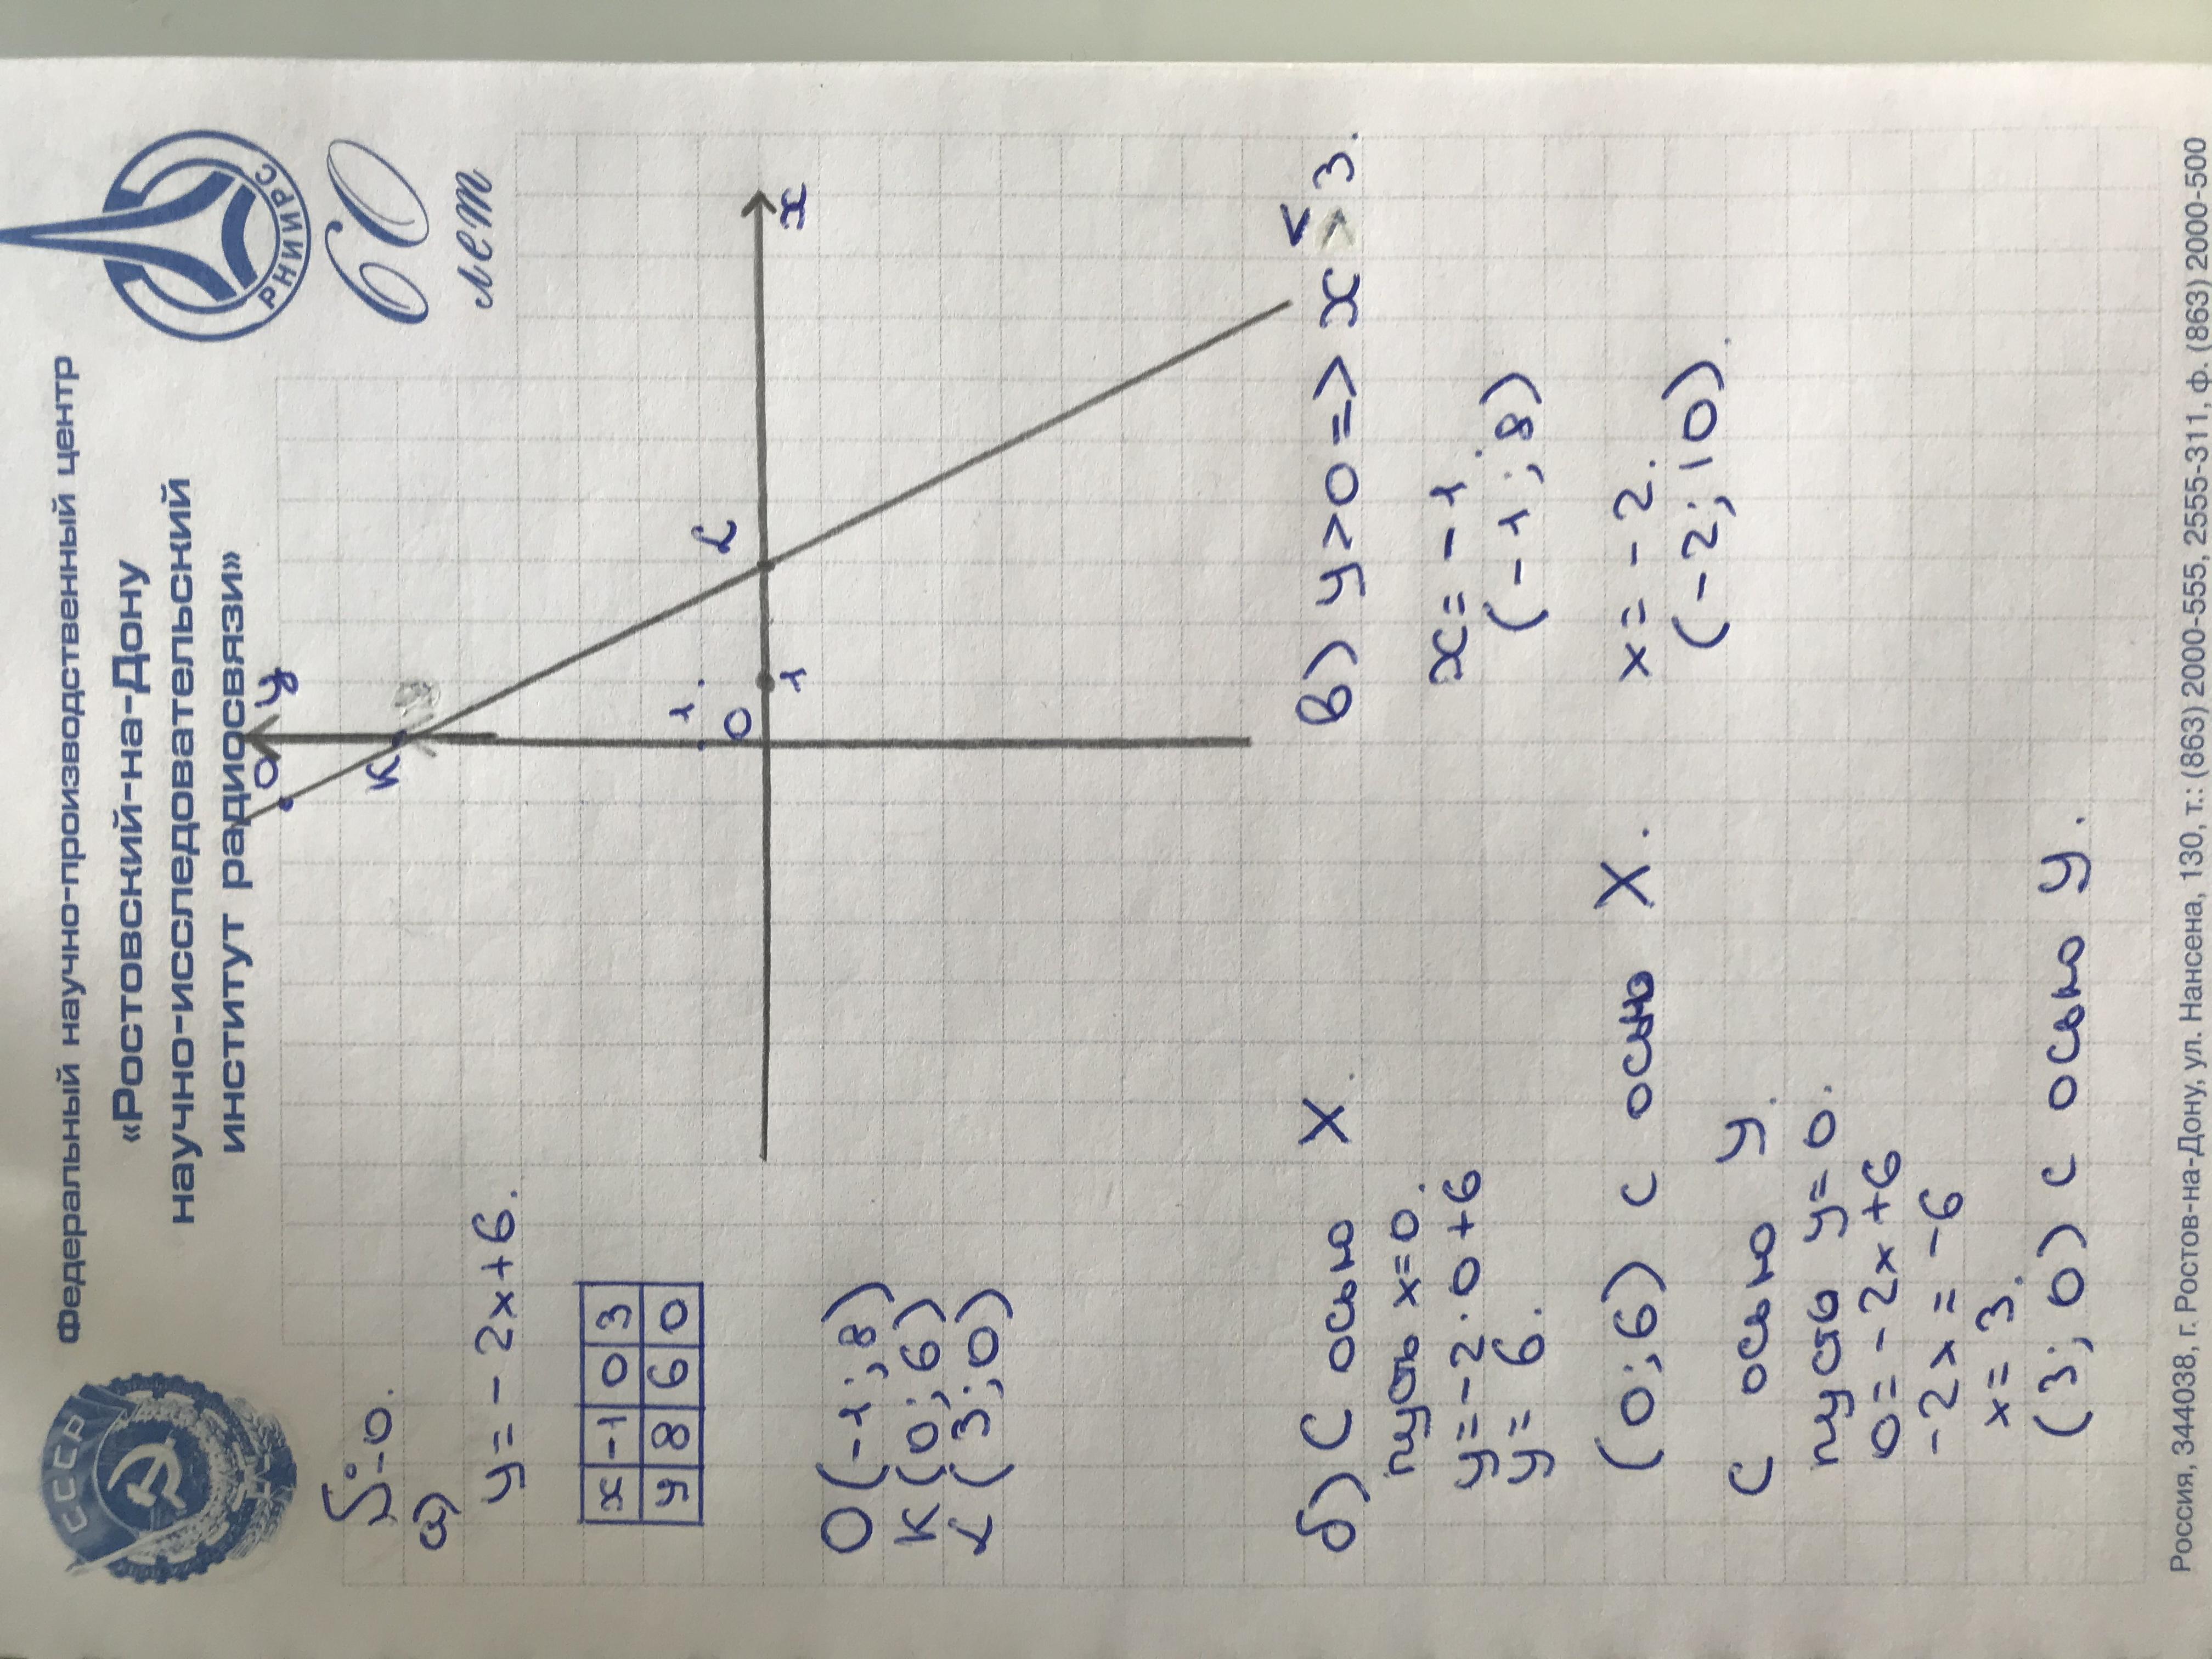 СССР
Федеральный научно-производственный центр
«Ростовский-на-Дону
научно-исследовательский
институт радиосвязи»
РНИИРС
60
лет
а)
y = - 2x+6.
x -1 0 3
y 8 6 0
O (-1;8)
K (0;6)
L (3;0)
O
y
K
1
0
1
L
x
б) С осью X.
пусть x=0.
y=-2·0+6
y= 6.
(0;6) с осью X.
С осью y.
пусть y=0.
0=-2x+6
-2x = -6
x=3.
(3;0) с осью y.
в) y>0 => x < 3.
x= -1.
(-1;8)
x= -2.
(-2;10).
Россия, 344038, г. Ростов-на-Дону, ул. Нансена, 130, т.: (863) 2000-555, 2555-311, ф. (863) 2000-500